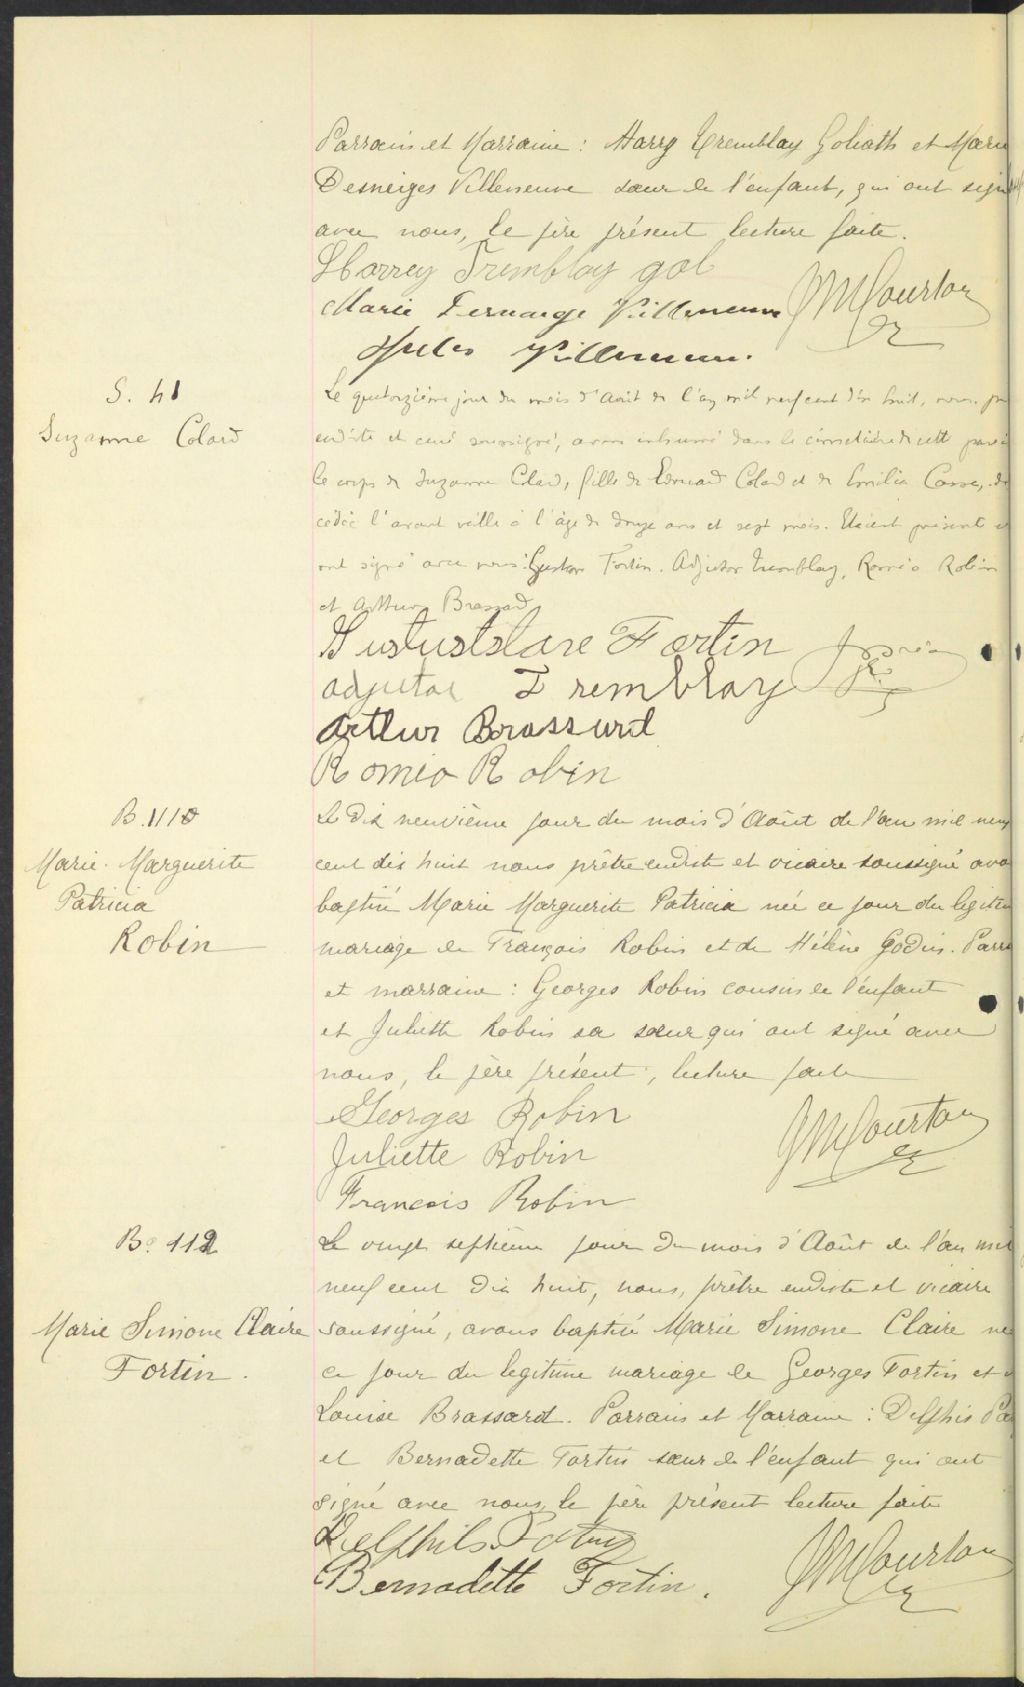 Parrain et Marraine : Harry Tremblay Goliath et Marie
Desneiges Villeneuve sœur de l'enfant, qui ont signé
avec nous, le père présent lecture faite.
Harrey Tremblay gol
Marie Villeneuve
Jules Villeneuve.
S. 41
Suzanne Colard
Le quatorzième jour du mois d'Août de l'an mil neuf cent dix huit, nous
eudiste et curé soussigné, avons inhumé dans le cimetière de cette
le corps de Suzanne Colard, fille de Edouard Colard et de Emilia dé
cédée l'avant veille à l'âge de douze ans et sept mois. Etaient présents
ont signé avec nous: Fortin. Adjutor Tremblay, Roméo Robin
et Arthur Brassard
Fortin
adjutor Tremblay
Arthur Brassard
Romeo Robin
B. 110
Marie Marguerite
Patricia
Robin
Le dix neuvième jour du mois d'Août de l'an mil neuf
cent dix huit nous prêtre eudiste et vicaire soussigné avo
baptisé Marie Marguerite Patricia née ce jour du légitim
mariage de François Robin et de Hélène Godin. Parra
et marraine : Georges Robin cousin de l'enfant
et Juliette Robin sa sœur qui ont signé avec
nous, le père présent, lecture faite
Georges Robin
JMCourtois
Juliette Robin
Francois Robin
B. 112
Marie Simone Claire
Fortin.
Le vingt septième jour du mois d'Août de l'an mil
neuf cent dix huit, nous, prêtre eudiste et vicaire
soussigné, avons baptisé Marie Simone Claire née
ce jour du legitime mariage de Georges Fortin et
Louise Brassard. Parrain et Marraine : Delphis
et Bernadette Fortin sœur de l'enfant qui ont
signé avec nous, le père présent lecture faite
Bernadette Fortin.